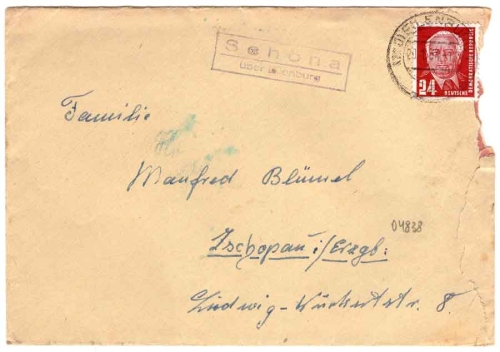 Schöna
über Eilenburg
EILENBURG
24
DEUTSCHE
DEMOKRATISCHE REPUBLIK
Familie
Manfred Blümel
04838
Zschopau i/Erzgb.
Ludwig-Würkertstr. 8.